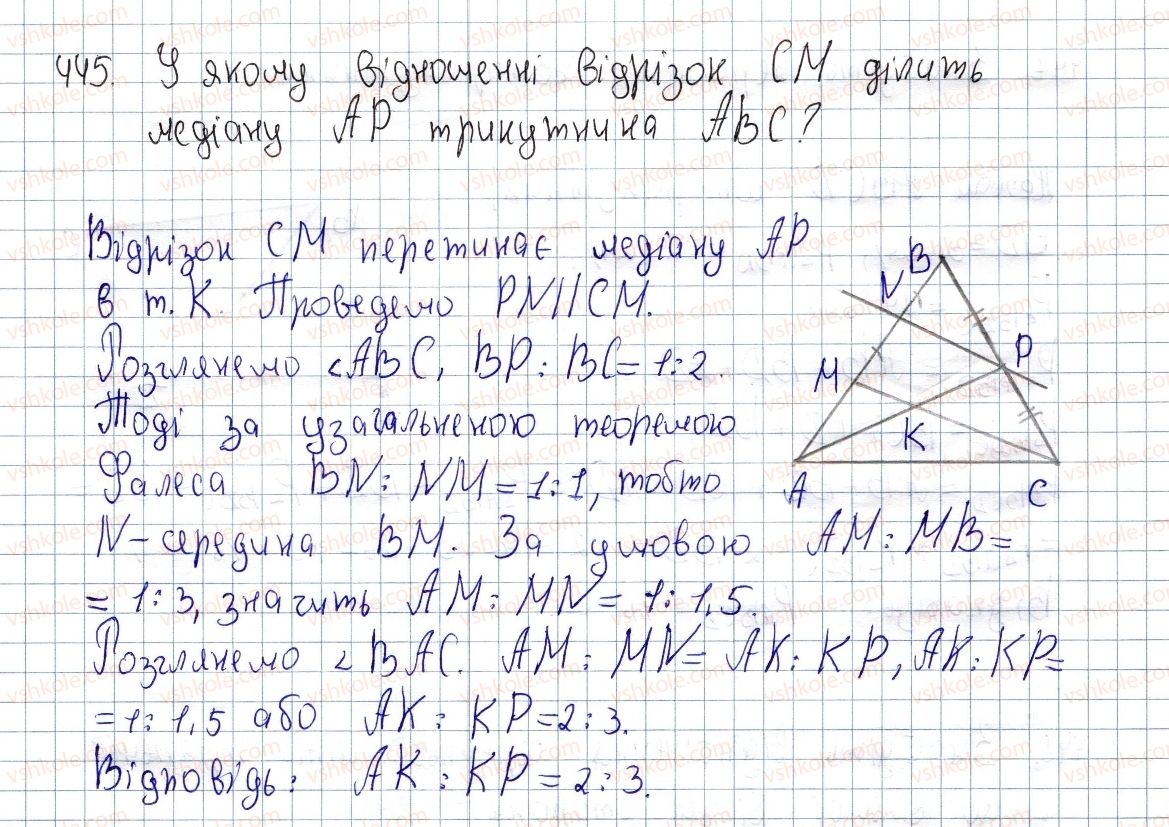 445. У якому відношенні відрізок СМ ділить
медіану АР трикутника АВС?
Відрізок СМ перетинає медіану АР
в т. К. Проведемо PN||CM.
Розглянемо <АВС, ВР : ВС = 1:2.
Тоді за узагальненою теоремою
Фалеса BN : NM = 1:1, тобто
N - середина ВМ. За умовою АМ : МВ =
= 1:3, значить АМ : MN = 1:1,5.
Розглянемо < ВАС. АМ : MN = АК : КР, АК : КР =
= 1:1,5 або АК : КР = 2:3.
Відповідь: АК : КР = 2:3.
B
N
P
M
K
A
C
vshkole.com